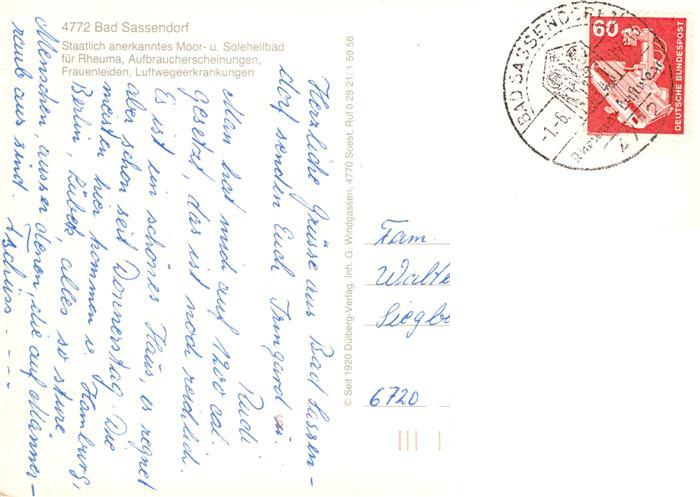 4772 Bad Sassendorf
Staatlich anerkanntes Moor- u. Soleheilbad
für Rheuma, Aufbraucherscheinungen,
Frauenleiden, Luftwegeerkrankungen
Herzliche Grüsse aus Bad Sassen-
dorf senden Euch Irmgard u.
Rudi
Man hat mich auf 1200 cal.
gesetzt, das ist noch reichlich.
Es ist ein schönes Haus, es regnet
aber schon seit Donnerstag. Die
meisten hier kommen v Hamburg,
Berlin, Lübeck, alles so sture
Menschen, ausser denen, die auf Männer-
raub aus sind. Tschüss - - -
© Seit 1920 Dülberg-Verlag, Inh. G. Windgassen, 4770 Soest, Ruf 0 29 21/1 59 56
BAD SASSENDORF
-1.-6.
60
DEUTSCHE BUNDESPOST
Fam.
Walte
Sieglb
6720